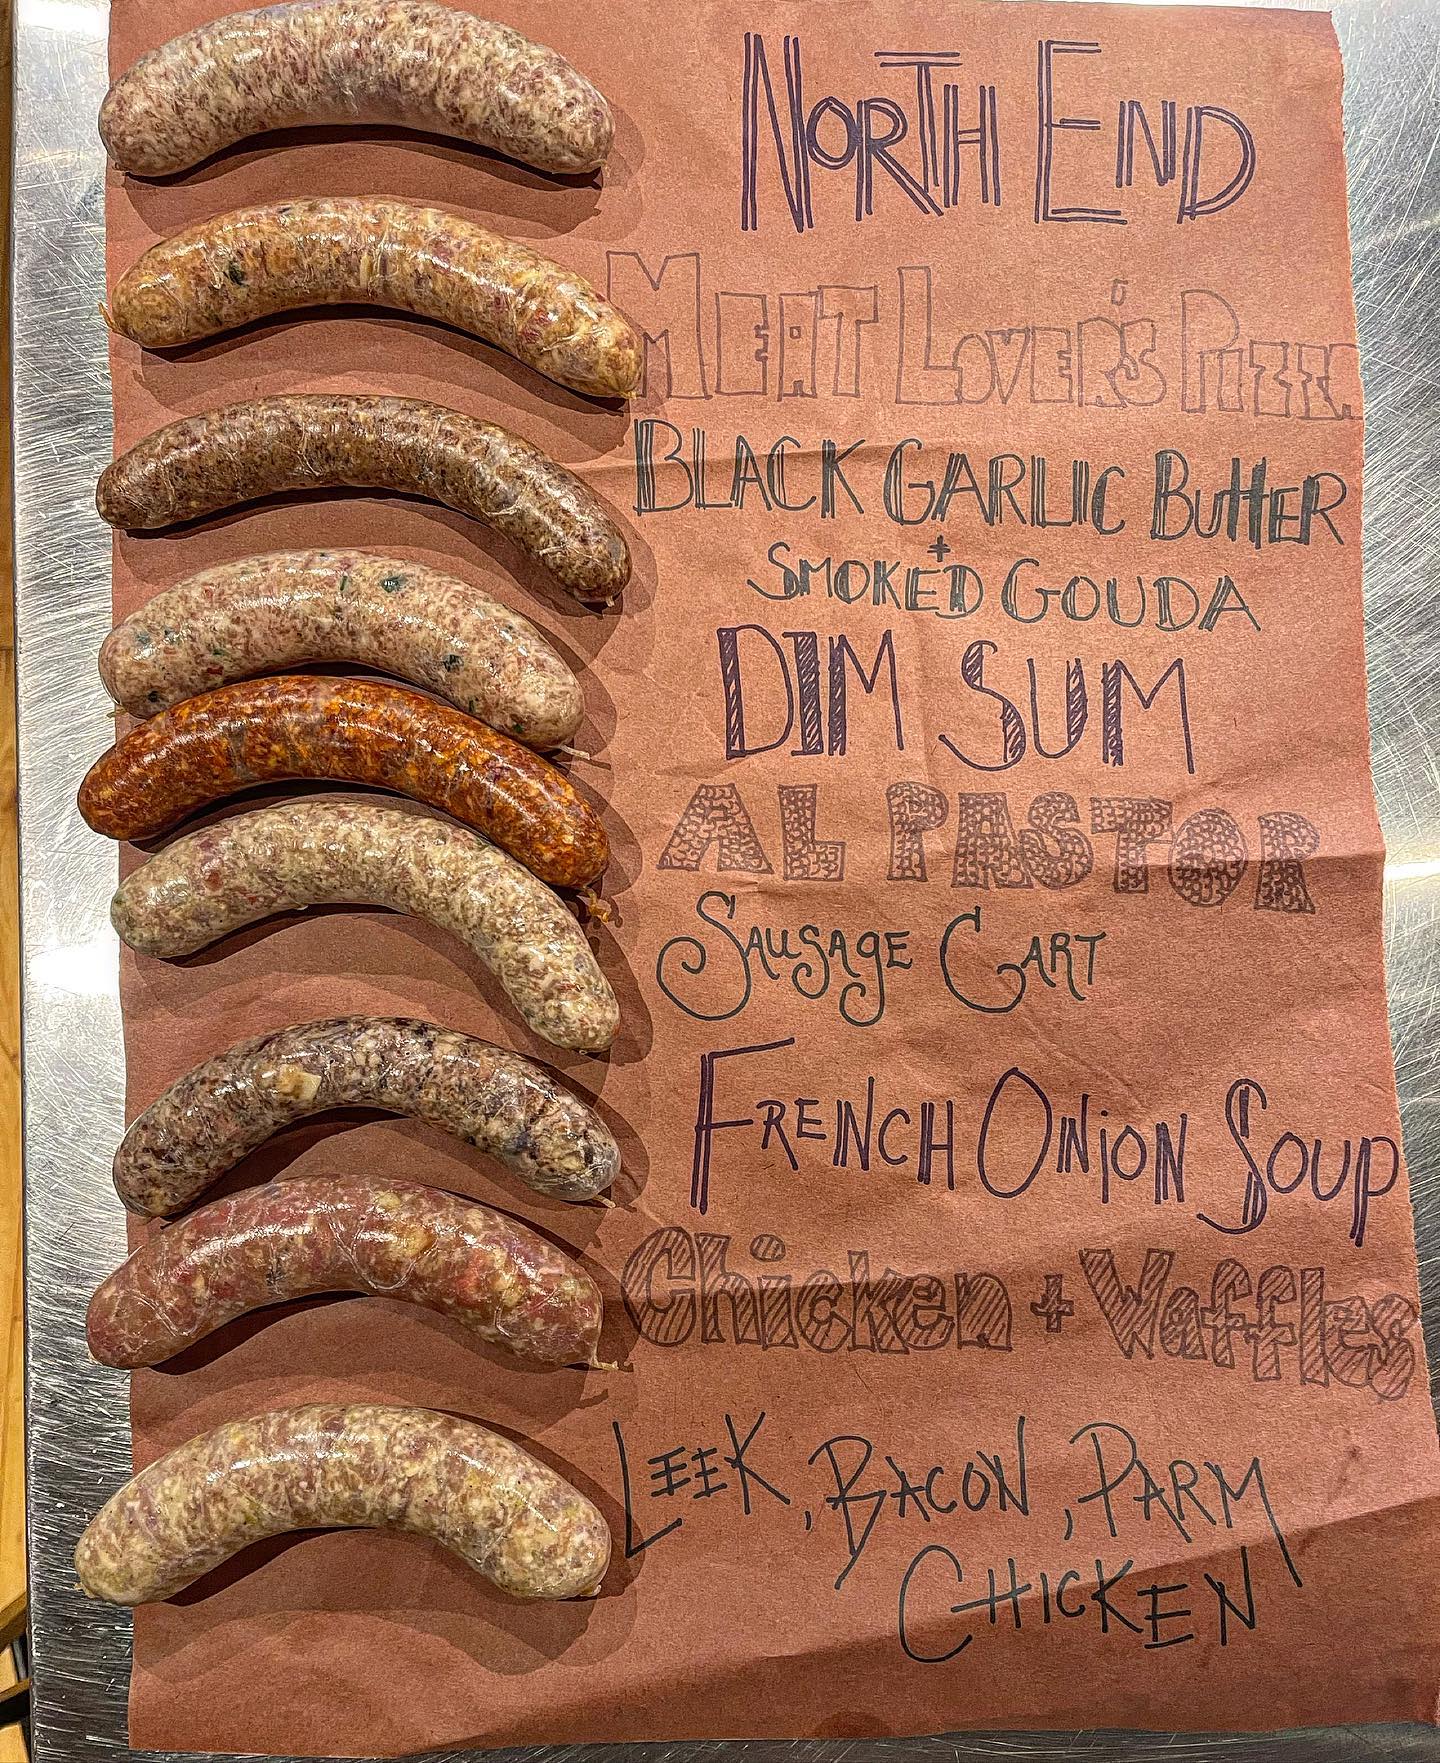 NORTH END
MEAT LOVER'S PIZZA
BLACK GARLIC BUTTER
+
SMOKED GOUDA
DIM SUM
AL PASTOR
SAUSAGE CART
FRENCH ONiON SOUP
Chicken + Waffles
LEEK, BACON, PARM
CHICKEN